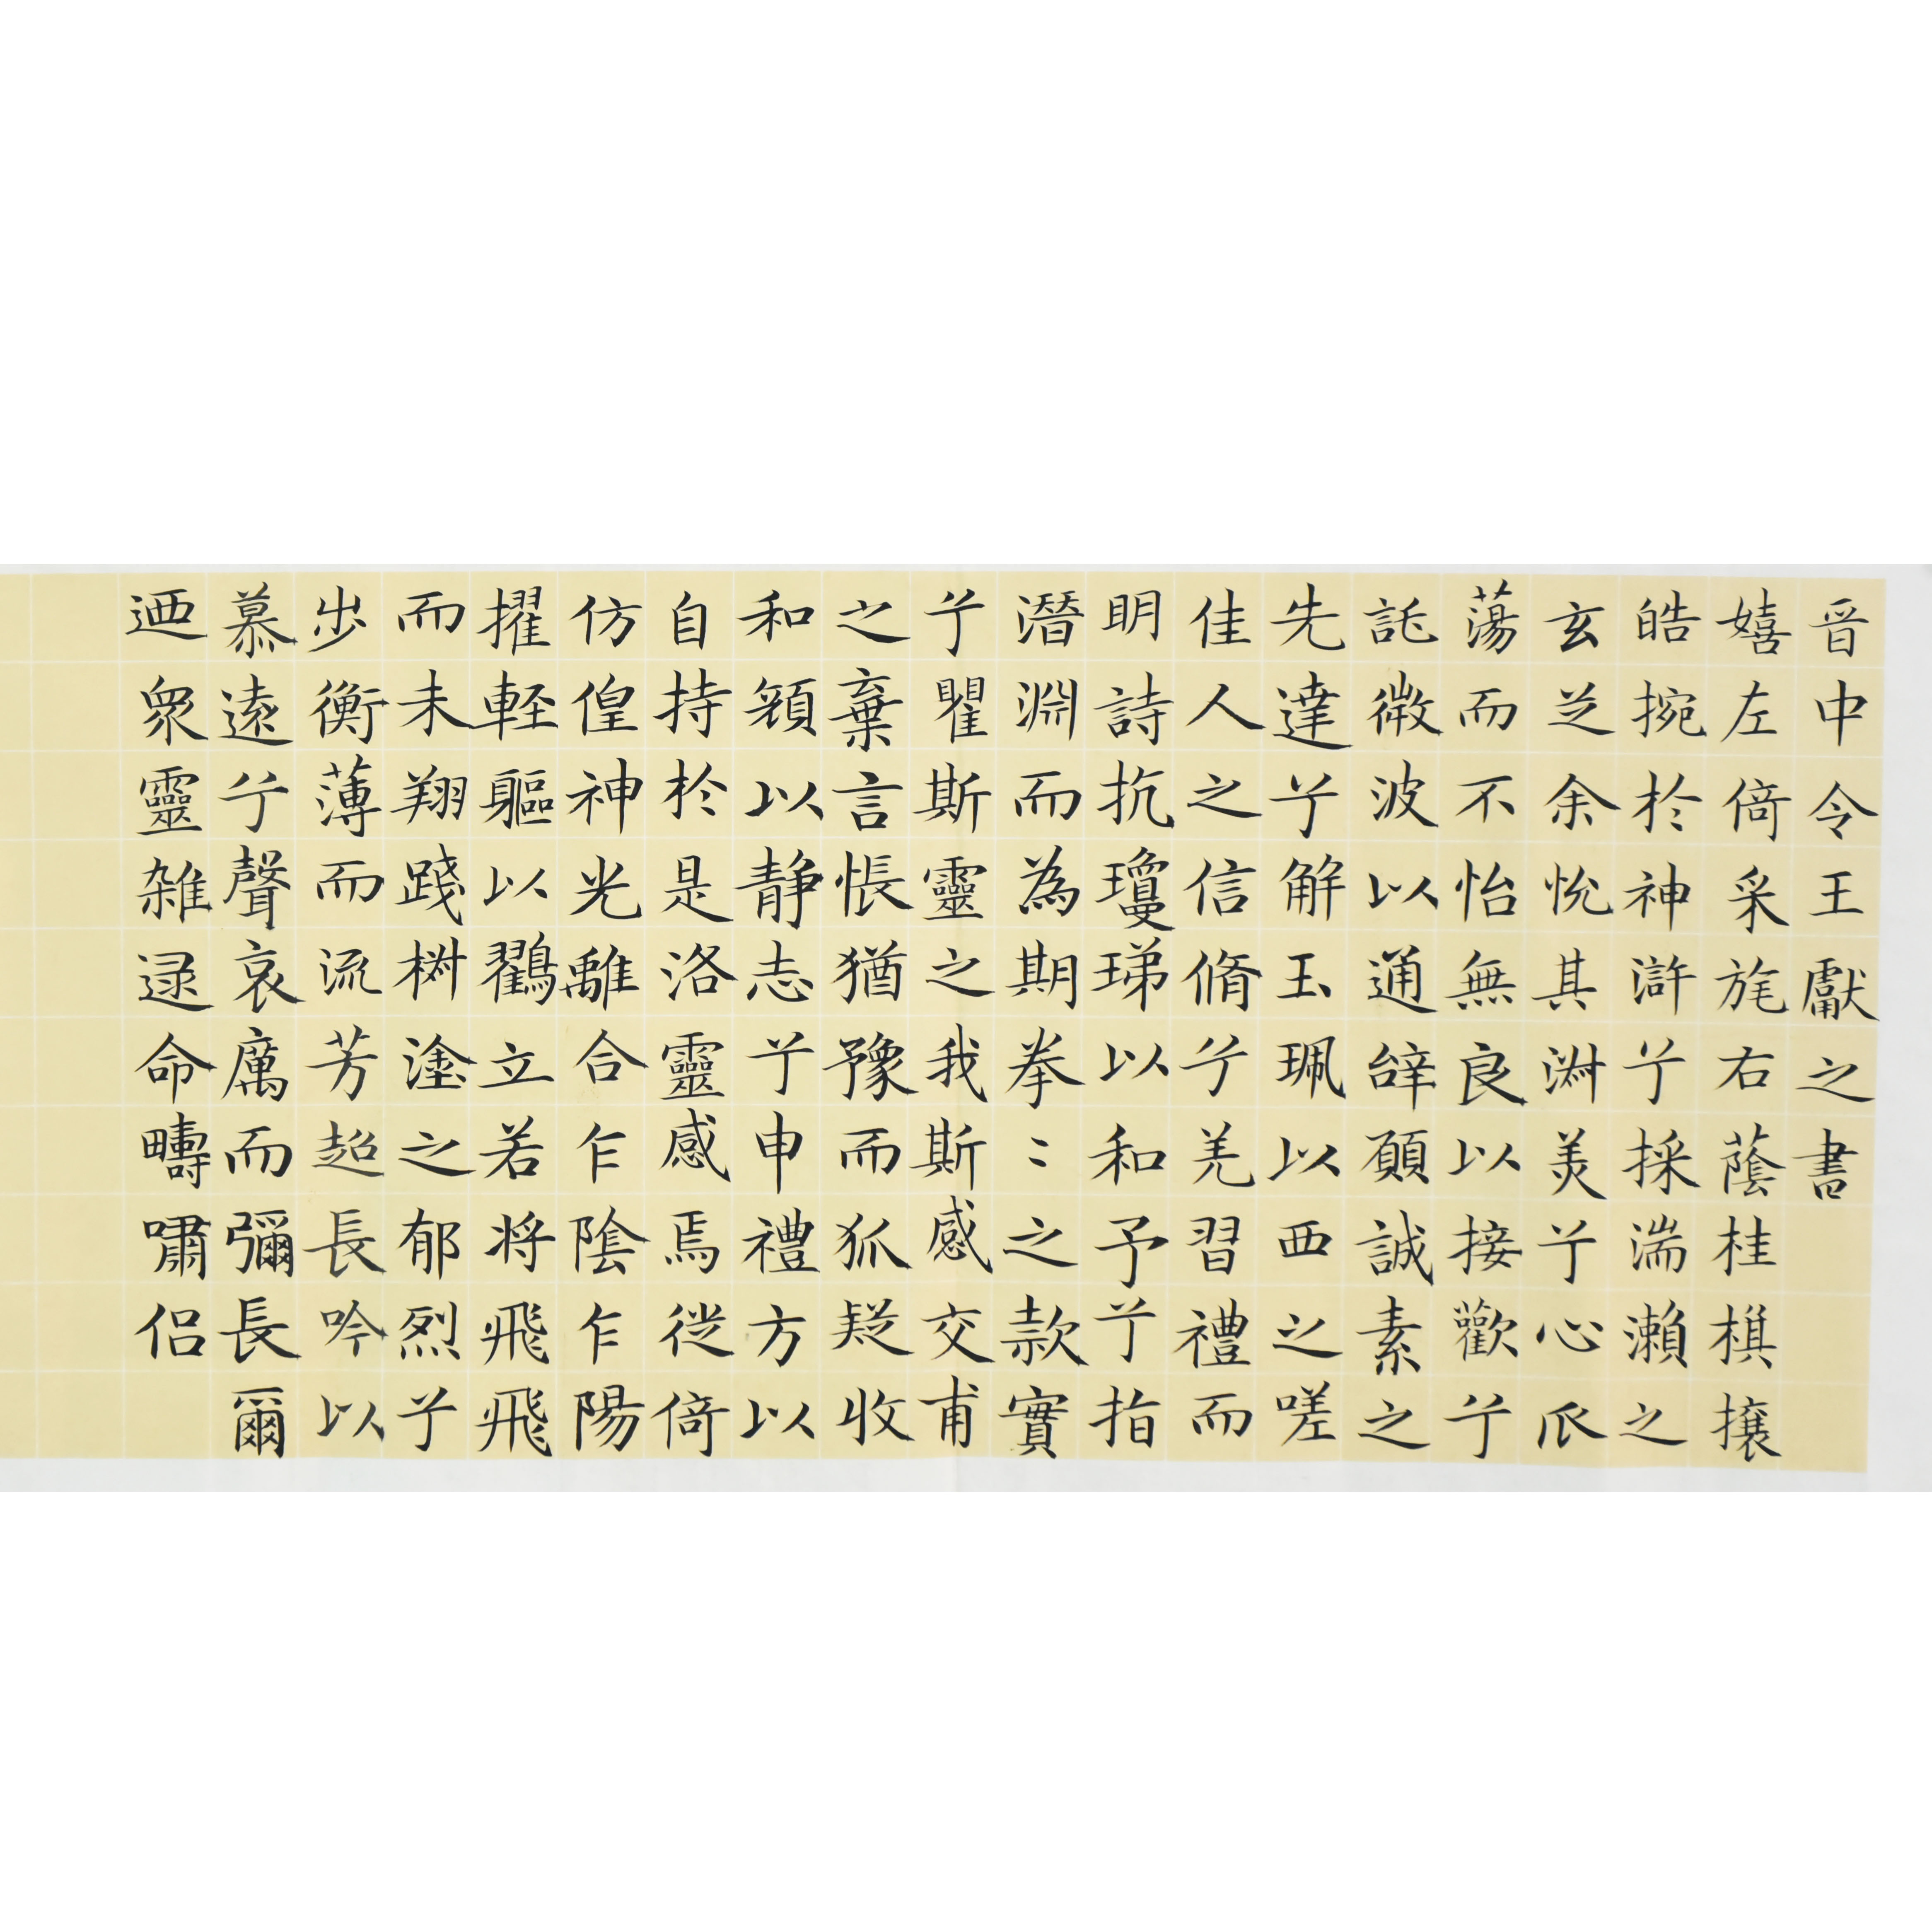 晉中令王獻之書
嬉左倚采旄右蔭桂棋攘
皓捥於神滸兮採湍瀨之
玄芝余悅其淋美兮心𠂢
蕩而不怡無良以接歡兮
託微波以通辭願誠素之
先達兮解玉珮以西之嗟
佳人之信脩兮羌習禮而
明詩抗瓊珶以和予兮指
潛淵而為期拳〻之款實
兮瞿斯靈之我斯感交甫
之棄言悵猶豫而狐疑收
和顏以静志兮申禮方以
自持於是洛靈感焉徙倚
仿偟神光離合乍陰乍陽
擢輕軀以鸖立若将飛飛
而未翔踐樹塗之郁烈兮
步衡薄而流芳超長吟以
慕遠兮聲哀厲而彌長爾
迺衆靈雜逯命疇嘯侣